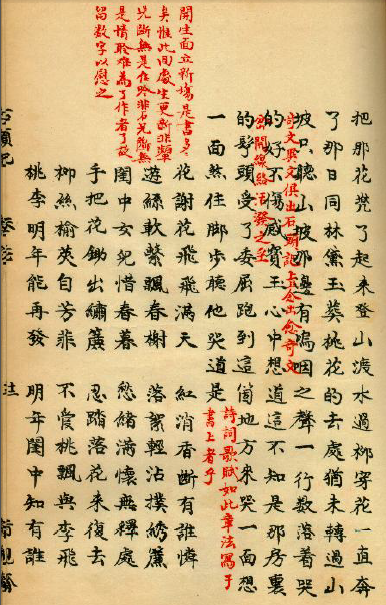 開生面立新塲是書多〻
矣惟此回處生更新非顰
兒斷無是佳吟非石兄斷無
是情聆難為了作者了故
留数字以慰之
把那花兠了起來登山渡水過柳穿花一直奔
了那日同林黛玉葬桃花的去處猶未轉過山
坡只聽山坡那邊有嗚咽之聲一行数落着哭
奇文異文俱出石頭記上念出愈奇文
的好不傷感寶玉心中想道這不知是那房裏
岔開線絡活潑之至
的髩頭受了委屈跑到這個地方來哭一面想
一面煞住脚步聽他哭道是
詩詞歌賦如此章法寫于
書上者乎
花謝花飛飛滿天 紅消香斷有誰憐
遊絲軟繫飄春榭 落絮輕沾撲綉簾
閨中女兒惜春暮 愁緒滿懷無釋處
手把花鋤出繡簾 忍踏落花來復去
柳絲榆莢自芳菲 不管桃飄與李飛
桃李明年能再發 明年閨中知有誰
石頭記 脂硯齋